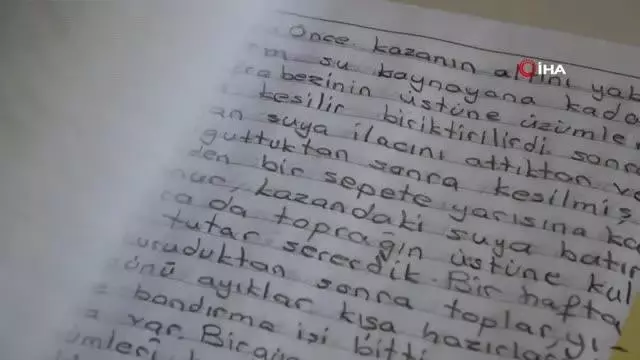 Önce kazanın altını yak
İHA
m su kaynayana kada
ra bezinin üstüne üzümle
kesilir biriktirilirdi sonra
an suya ilacını attıktan ve
guttuktan sonra kesilmiş
den bir sepete yarısına ka
nur, kazandaki suya batır
ra da toprağın üstüne kul
tutar sererdik. Bir hafta
uruduktan sonra toplar, yı-
önü ayıklar kışa hazırla
bandırma işi bitti
a var. Bir
ümleri